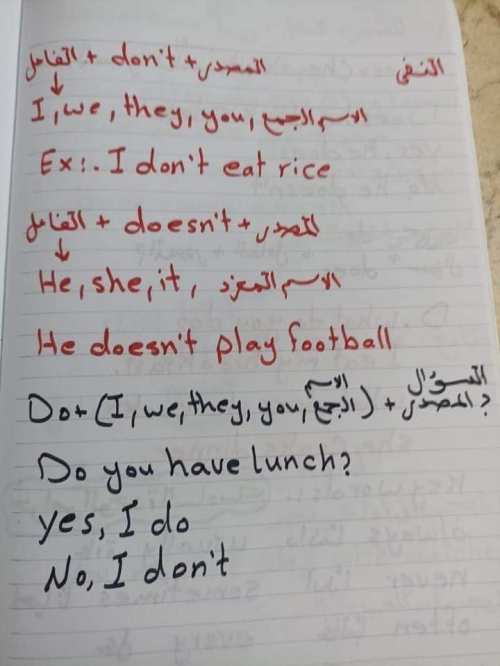 النفى
الفاعل + don't + المصدر
↓
I, we, they, you, الاسم الجمع
Ex:. I don't eat rice
الفاعل + doesn't + المصدر
↓
He, she, it, الاسم المفرد
He doesn't play football
السؤال
Do + (I, we, they, you, الاسم الجمع) + المصدر ?
Do you have lunch?
yes, I do
No, I don't